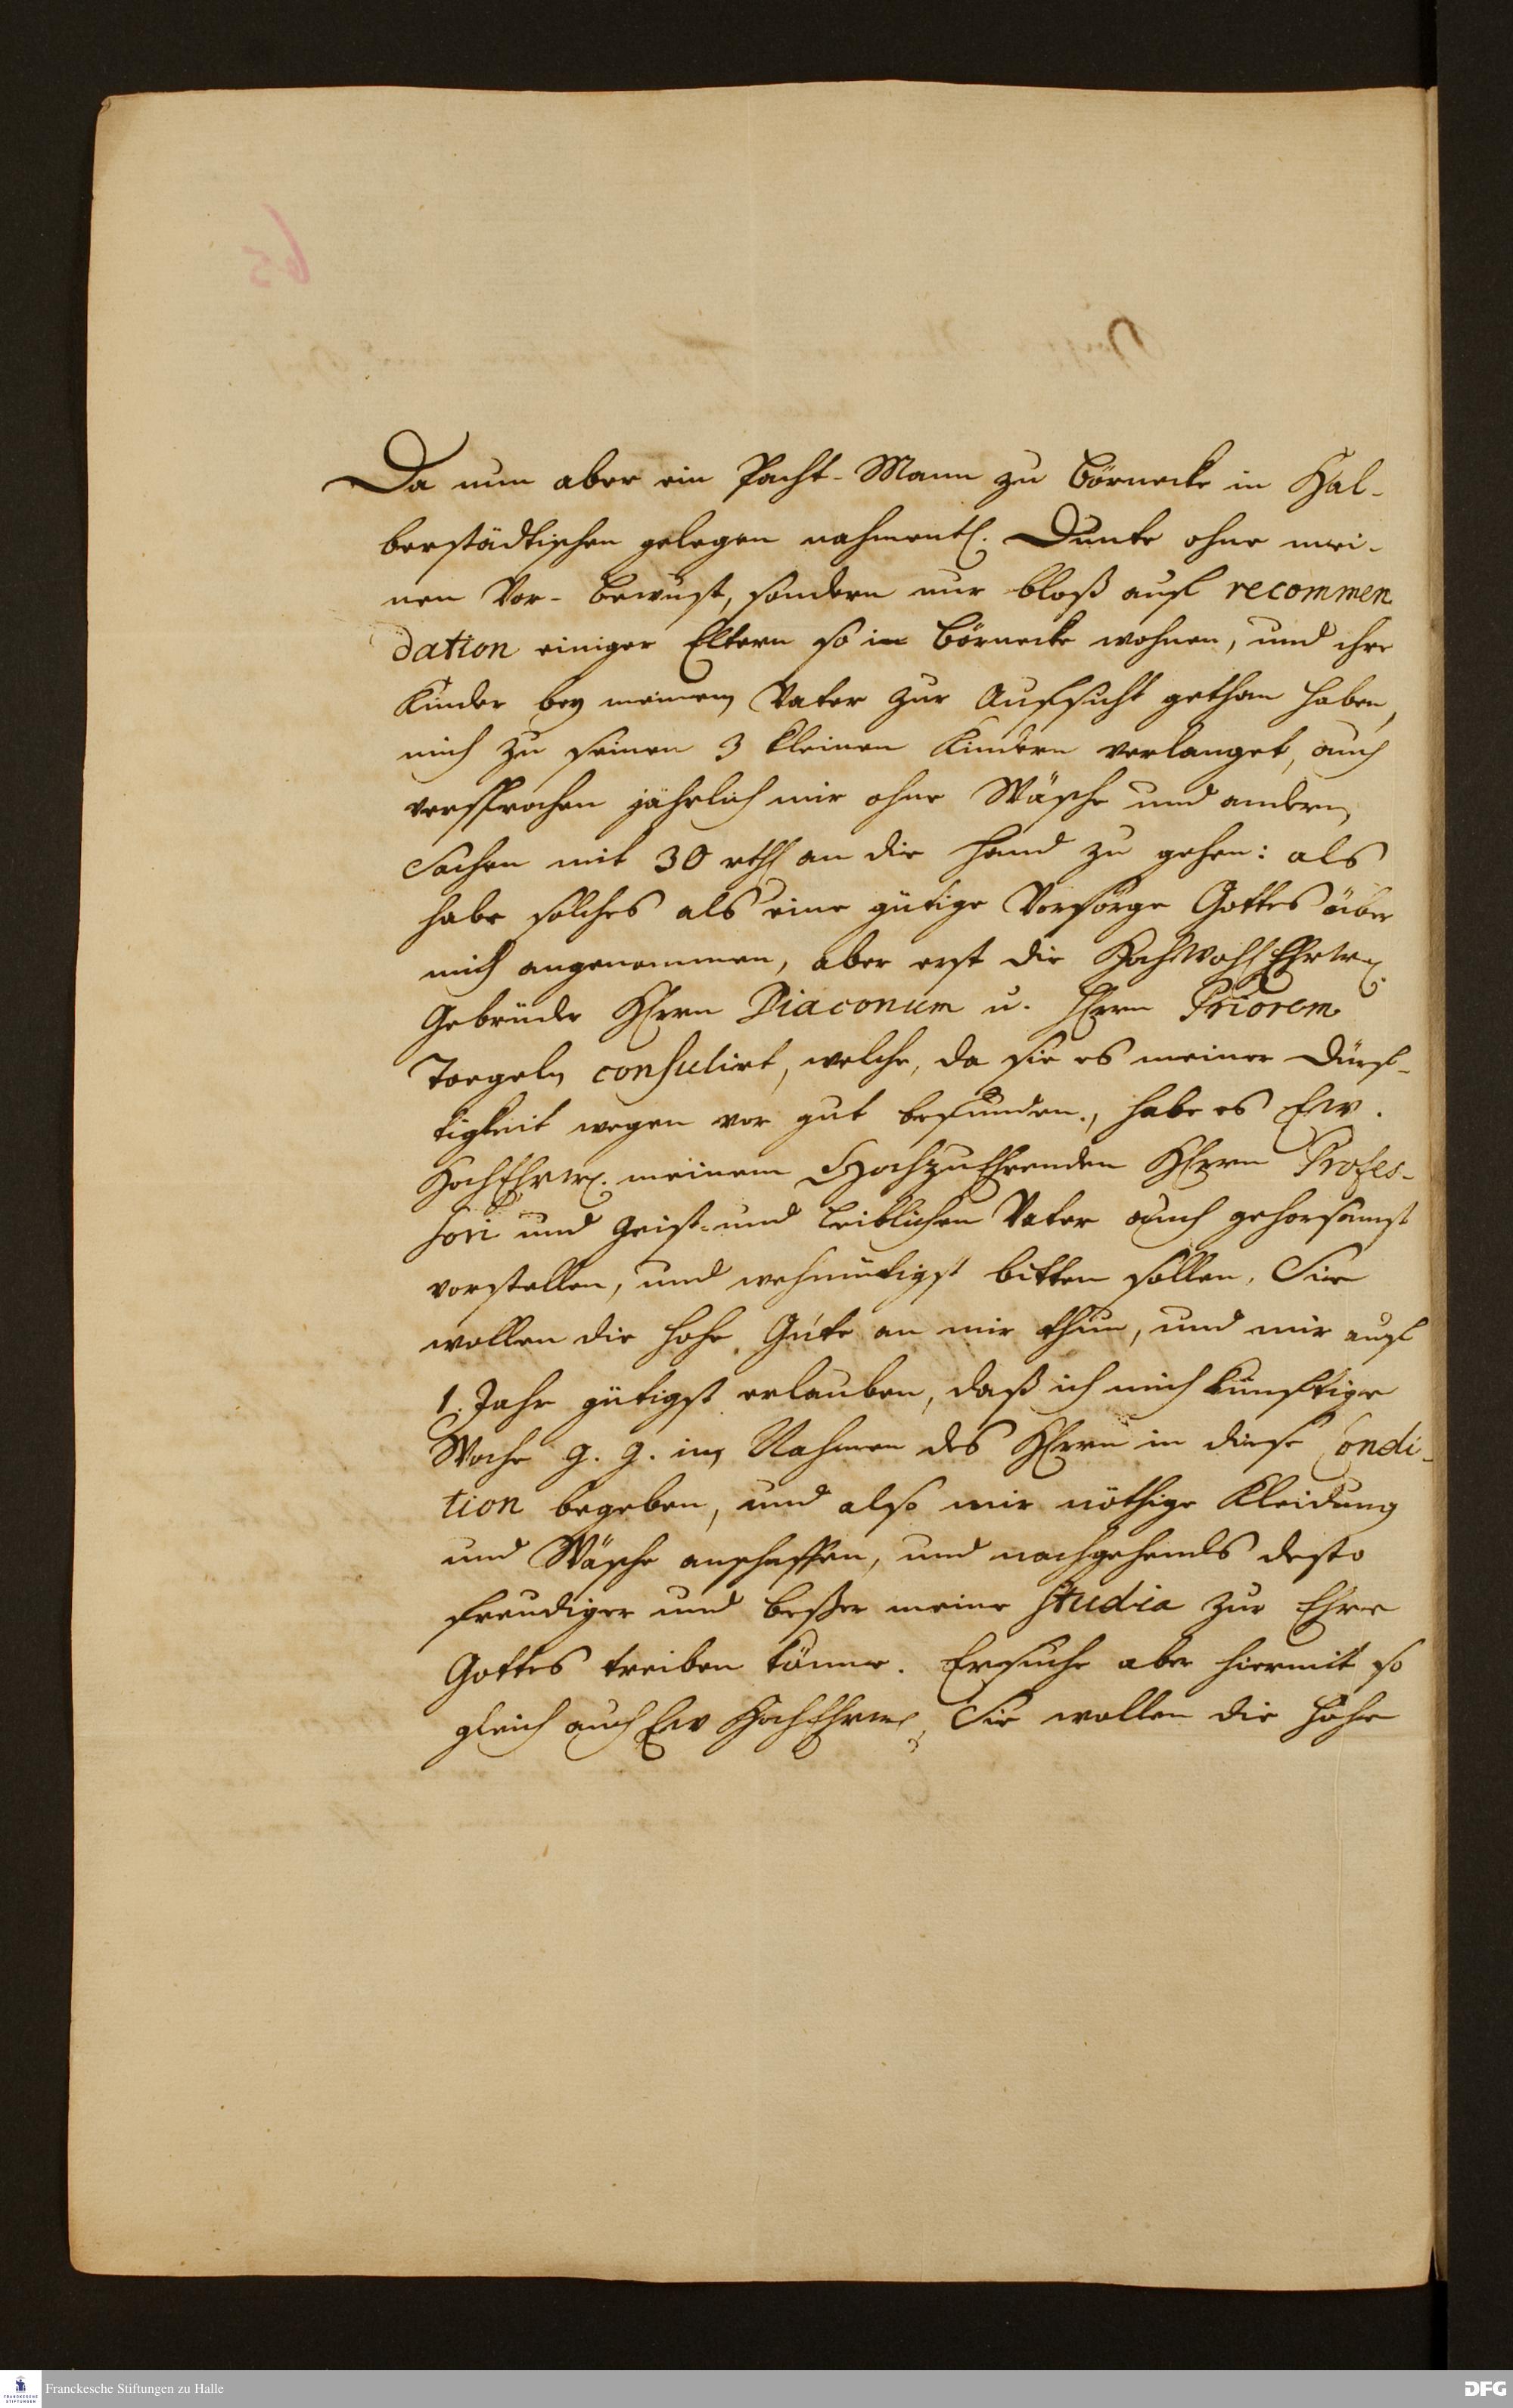 Da nun aber ein Pacht-Mann zu Börnecke in Hal-
berstädtischen gelegen nahmentl. Dunte ohne mei-
nen Vor-Bewust, sondern nur bloß auf recommen
dation einiger Eltern so in Börnecke wohnen, und ihre
Kinder bey meinem Vater zur Aufsicht gethan haben,
mich zu seinen 3 kleinen Kindern verlanget, auch
versprochen jährlich mir ohne Wäsche und andern
Sachen mit 30 rthl an die Hand zu gehen: als
habe solches als eine gütige Vorsorge Gottes über
mich angenommen, aber erst die HochWohlEhrw.
Gebrüder HErrn Diaconum u. HErrn Priorem
Toegeln consulirt, welche, da sie es meiner Dürf-
tigkeit wegen vor gut befunden, habe es Ew.
HochEhrw. meinem HochzuEhrenden HErrn Profes-
sori und Geist- und Leiblichen Vater auch gehorsamst
vorstellen, und wehmütigst bitten sollen, Sie
wollen die hohe Güte an mir thun, und mir auf
1. Jahr gütigst erlauben, daß ich mich künftige
Woche g. g. im Nahmen des HErrn in diese Condi-
tion begeben, und also mir nöthige Kleidung
und Wäsche anschaffen, und nachgehends desto
freudiger und beßer meine studia zur Ehre
Gottes treiben könne. Ersuche aber hiermit so
gleich auch Ew HochEhrw, Sie wollen die hohe
65
Franckesche Stiftungen zu Halle
FRANCKESCHE
STIFTUNGEN
DFG